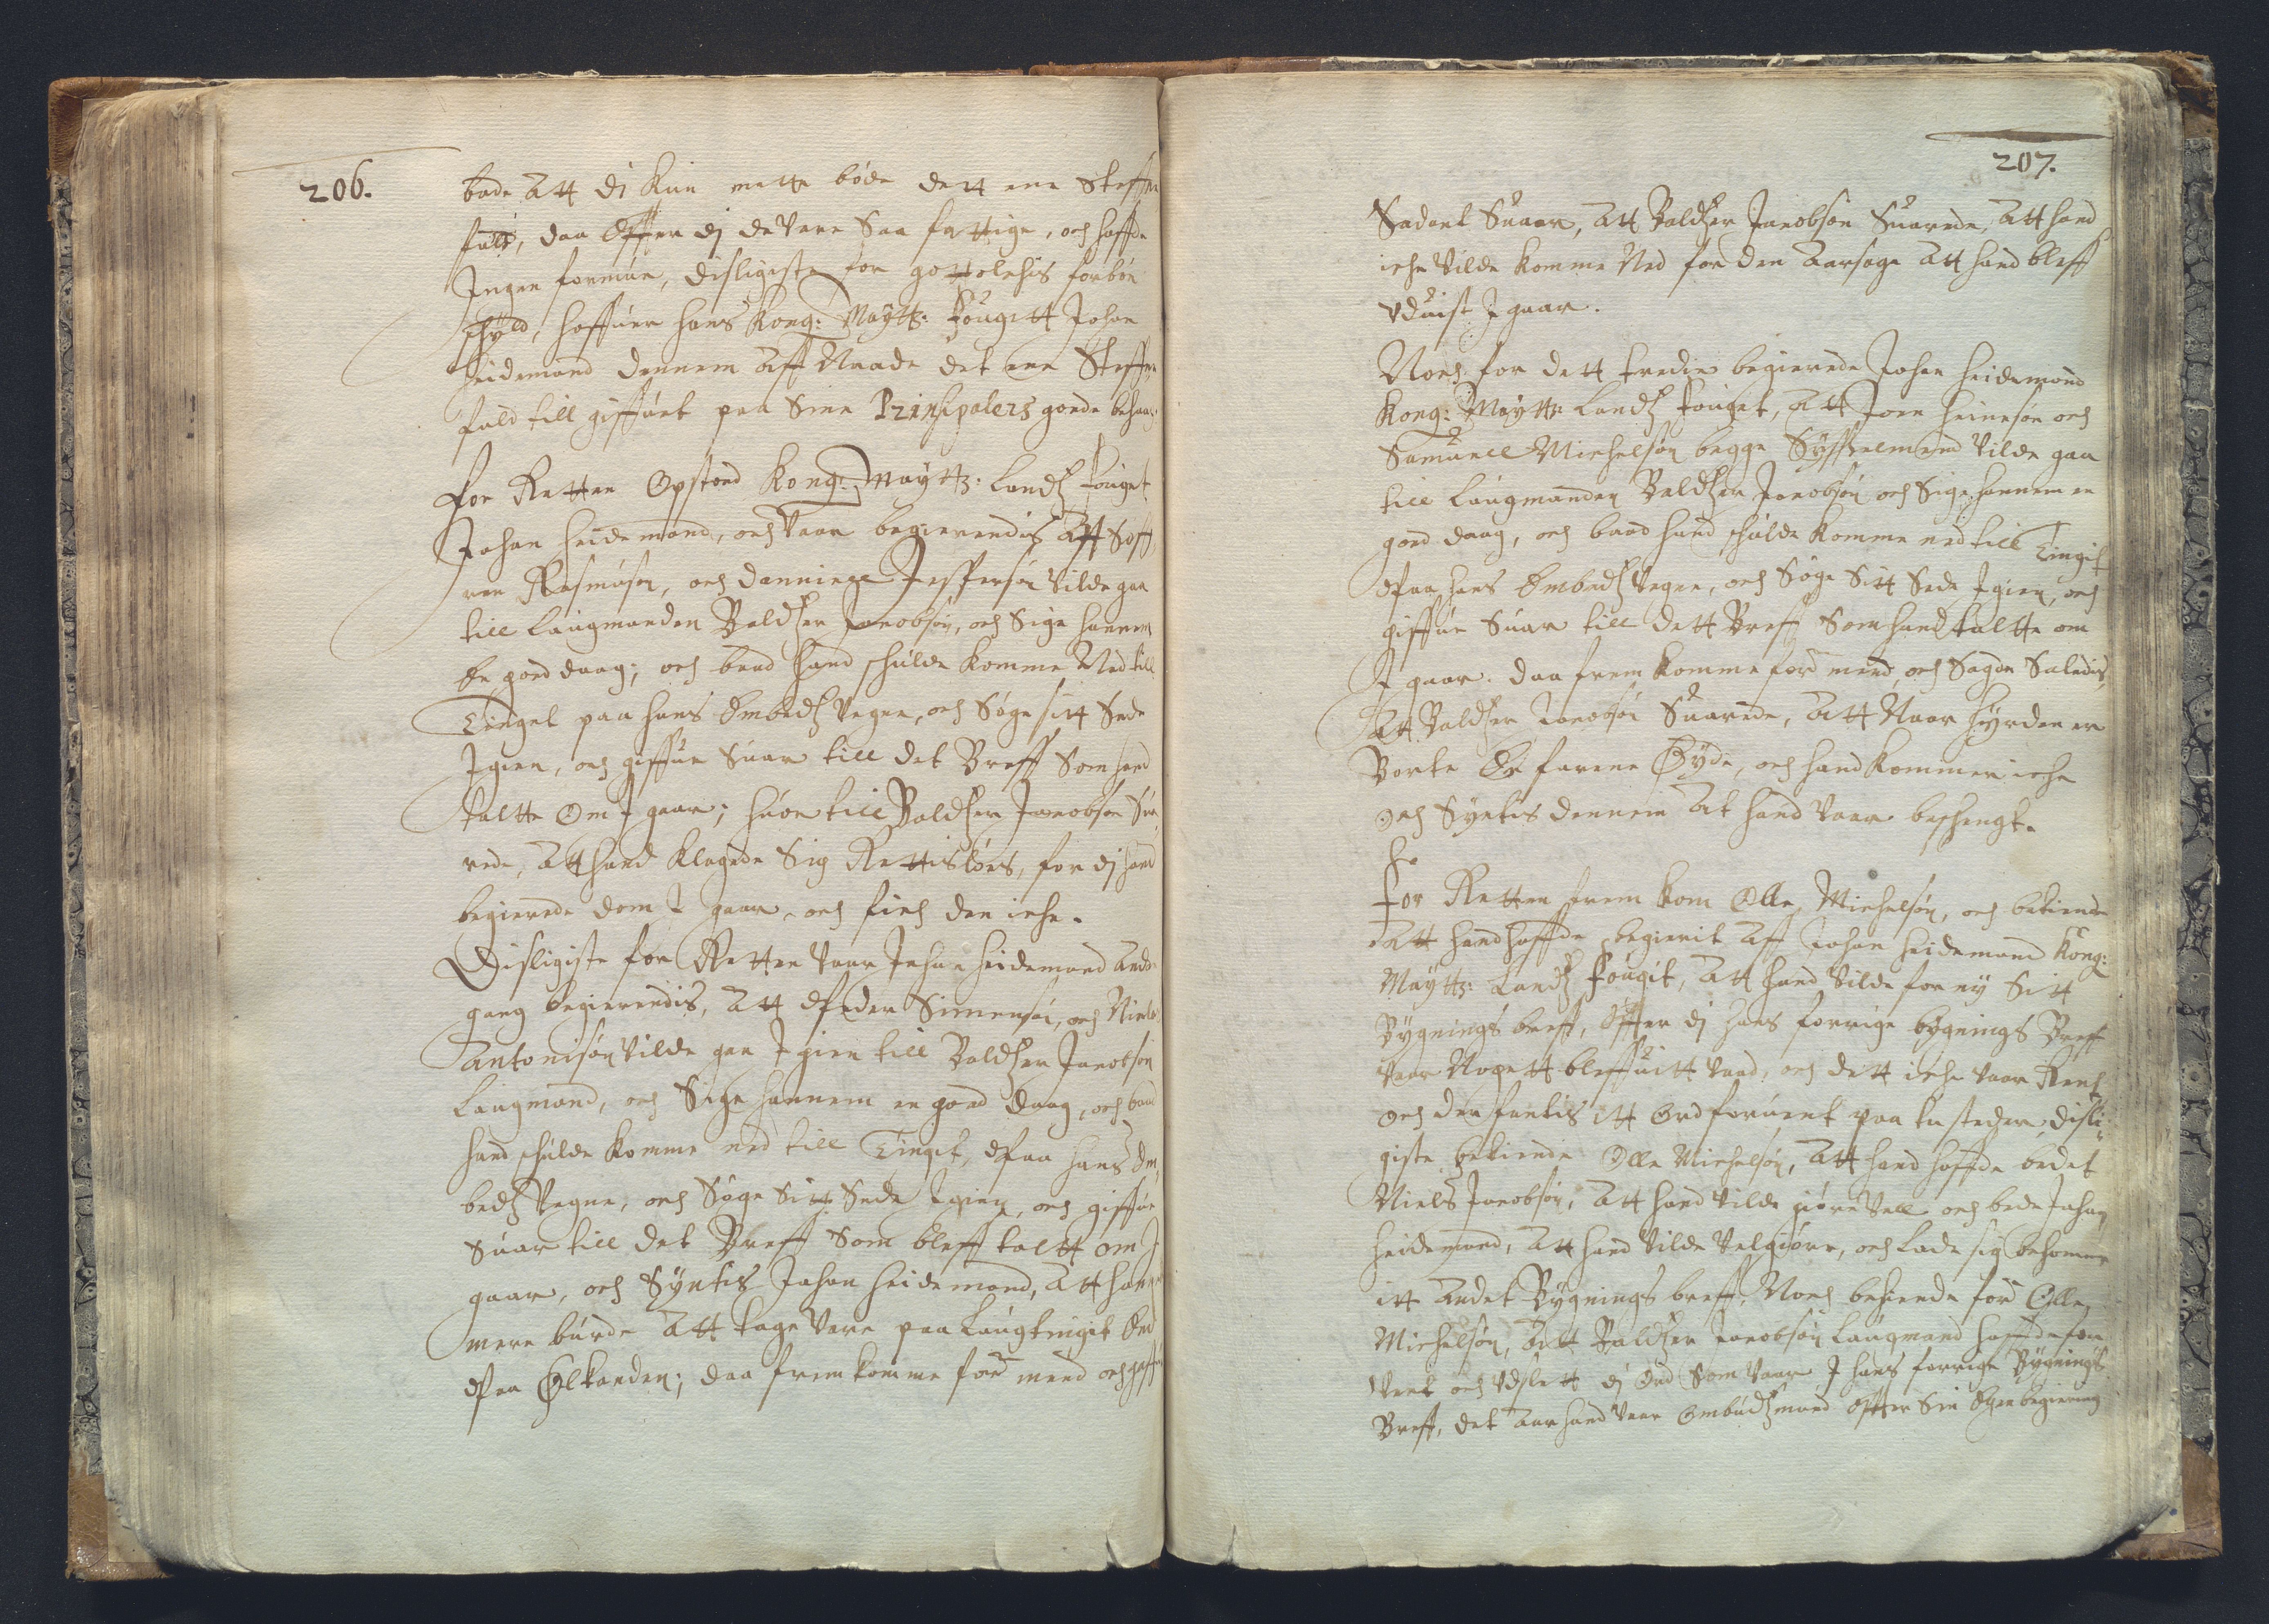 206.
bade Att di kun motte bøde dett ene Steffne
fald, daa Effter dj de Vare Saa fattige, och haffde
Ingen formue, disligiste for gottolchis forbøn
schyld, haffuer hans Kong: Maytts: fougitt Johan
heidemand dennem Aff Naade det ene Steffne
fald till giffuet paa Sine Prinsipalers goede behaag.
for Retten Opstod Kong: Maytts: Landtz fouget
Johan heidemand, och Vaar begierendis Att Soff,
ren Rasmusøn, och Danniegel Jespersøn Vilde gaa
till Laugmanden Baldtzer Jacobsøn, och Sige hannem
En goed daag; och baad hand schulde komme Ned till
Tinget paa hans Embedtz Vegne, och Søge sitt Sede
Igien, och giffue Suar till det Breff Som hand
taltte Om I gaar; huor till Baldtzer Jacobsøn Sua,
rede, Att hand klagede Sig Rettisløes, for dj hand
begierede dom I gaar, och fich den iche.
Disligiste for Retten Vaar Johan heidemand Anden
gang begierendis, Att Peder Simensøn, och Niels
Antonisøn Vilde gaa Igien till Baldtzer Jacobsøn
Laugmand, och Sige hannem en goed daag, och baad
hand schulde komme ned till Tingit, Paa hans Em,
bedtz Vegne, och Søge Sitt Sede Igien, och giffue
Suar till det Breff Som bleff taltt om I
gaar, och Syntis Johan heidemand, Att hannem
mere burde Att tage Vare paa Laugtingit End
Paa Ølkanden; daa frem komme ford mend och gaff
207.
Sadant Suaar, Att Baldtzer Jacobsøn Suarede, Att hand
iche Vilde komme Ned for den Aarsage Att hand bleff
Vduist I gaar.
Noch for dett tredie begierede Johan heidemand
Kong: Maytts: Landtz fouget, Att Joen heinesøn och
Samuell Michelsøn begge Sysselmend Vilde gaa
till Laugmanden Baldtzer Jacobsøn och Sige hannem en
goed daag, och baad hand schulde komme ned till Tingit
Paa hans Embedtz Vegne, och Søge Sitt Sede Igien, och
giffue Suar till dett Breff Som hand taltte om
I gaar. daa frem komme ford mend, och Sagde Saledis,
Att Baldtzer Jacobsøn Suarede, Att Naar hyrden er
Borte Er faarene Øyde, och hand kommer iche
Och Syntis dennem At hand Vaar beschengt.
For Retten frem kom Olle Michelsøn, och bekiende
Att hand haffde begierit Aff Johan heidemand Kong:
Maytts: Landtz fougit, Att hand Vilde forny Sitt
Bygnings breff, Effter dj hans forrige bygnings Breff
Vaar Nogett bleffuitt Vaad, och dett iche Vaar Rent,
och der fantis itt Ord foruent paa tu steder, disli,
giste bekiende Olle Michelsøn, Att hand haffde bedet
Niels Jacobsøn, Att hand Vilde giøre Vell och bede Johan
heidemand, Att hand Vilde Velgiøre, och Lade sig bekomme
itt Andet Bygnings breff, Noch bekiende ford Olle
Michelsøn, Att Baldtzer Jacobsøn Laugmand haffde for
Vent och Vdslett dj Ord Som Vaar I hans forrige Bygnings
Breff, det Aar hand Vaar Ombudtzmand effter Sin Egen begiering